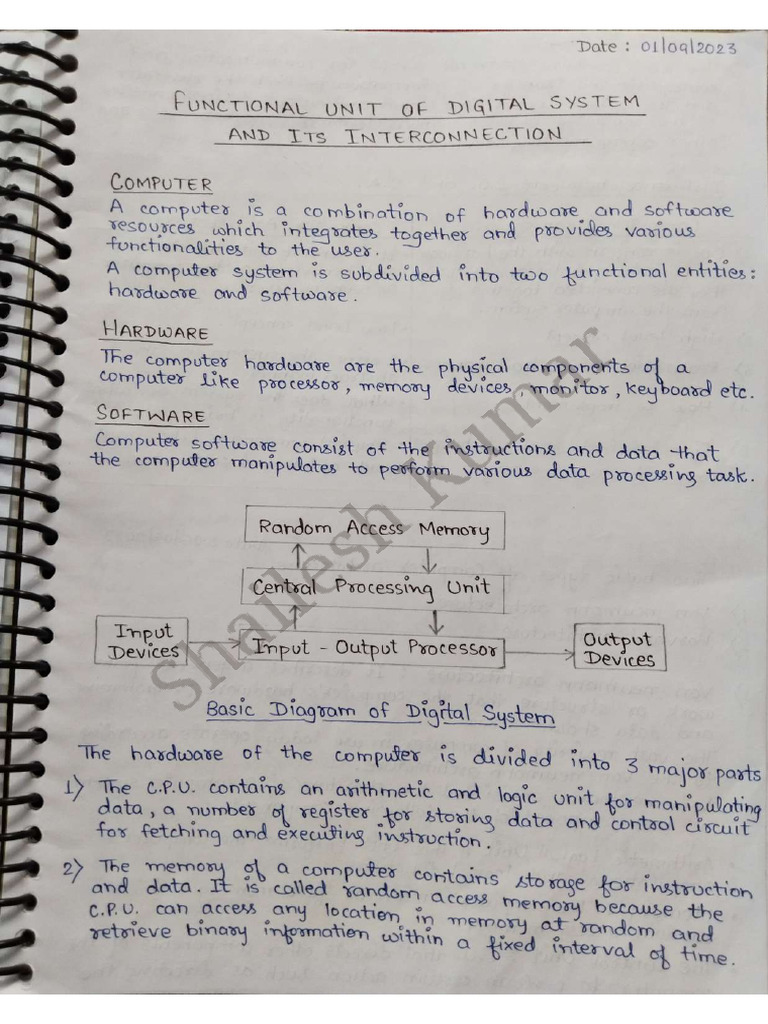 Date : 01/09/2023
FUNCTIONAL UNIT OF DIGITAL SYSTEM
AND ITS INTERCONNECTION
COMPUTER
A computer is a combination of hardware and software
resources which integrates together and provides various
functionalities to the user.
A computer system is subdivided into two functional entities:
hardware and software.
HARDWARE
The computer hardware are the physical components of a
computer like processor, memory devices, monitor, keyboard etc.
SOFTWARE
Computer software consist of the instructions and data that
the computer manipulates to perform various data processing task.
Random Access Memory
Central Processing Unit
Input Devices
Input - Output Processor
Output Devices
Shailesh Kumar
Basic Diagram of Digital System
The hardware of the computer is divided into 3 major parts
1) The C.P.U. contains an arithmetic and logic unit for manipulating
data, a number of register for storing data and control circuit
for fetching and executing instruction.
2) The memory of a computer contains storage for instruction
and data. It is called random access memory because the
C.P.U. can access any location in memory at random and
retrieve binary information within a fixed interval of time.